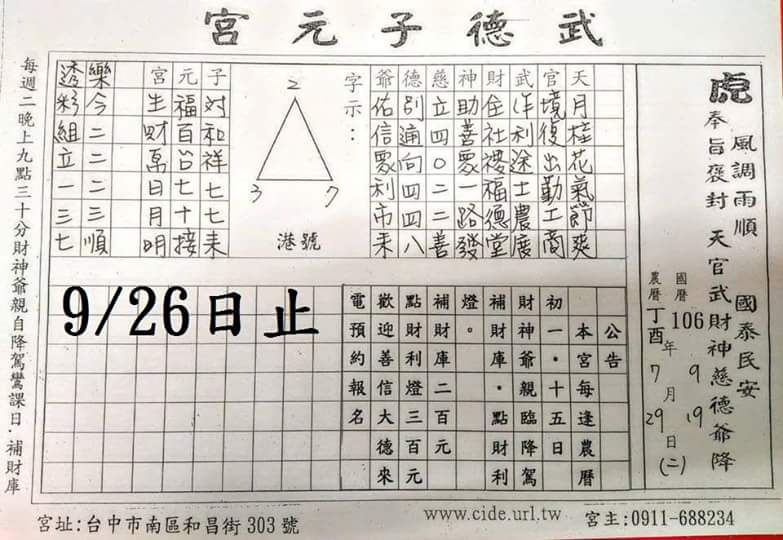 武德子元宮
風調雨順 國泰民安
虎 奉旨褒封 天官武財神慈德爺降
國曆 106 年 9 月 19 日 (二)
農曆 丁酉 年 7 月 29 日
天月桂花氣節爽
官境復出勤工商
武 利途士農
財住社 福德堂
神助善眾一路發
慈立四0二二善
德別 向四四八
爺佑信眾利市來
字示：
2
3 7
港號
子對和祥七七來
元福百台七十接
宮生財萬日月明
樂今二二二三順
透彩組立一三七
公告
本宮每逢農曆
初一．十五日
財神爺親臨降駕
補財庫．點財利
燈。
補財庫二百元
點財利燈三百元
歡迎善信大德來
電預約報名
9/26日止
每週二晚上九點三十分財神爺親自降駕鸞課日．補財庫
宮址:台中市南區和昌街 303 號
www.cide.url.tw
宮主:0911-688234